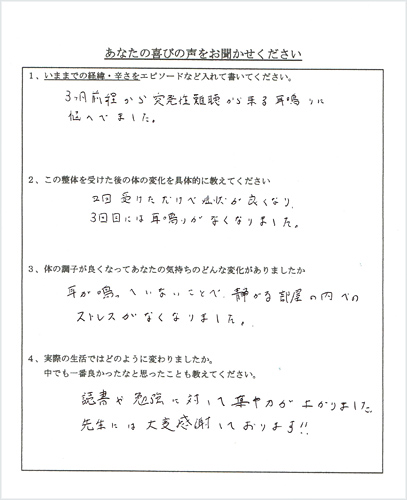 あなたの喜びの声をお聞かせください
1、いままでの経緯・辛さをエピソードなど入れて書いてください。
3ヶ月前程から突発性難聴から来る耳鳴りに
悩んでました。
2、この整体を受けた後の体の変化を具体的に教えてください
2回受けただけで症状が良くなり、
3回目には耳鳴りがなくなりました。
3、体の調子が良くなってあなたの気持ちのどんな変化がありましたか
耳が鳴っていないことで、静かな部屋の内での
ストレスがなくなりました。
4、実際の生活ではどのように変わりましたか。
中でも一番良かったなと思ったことも教えてください。
読書や勉強に対して集中力が上がりました。
先生には大変感謝しております!!